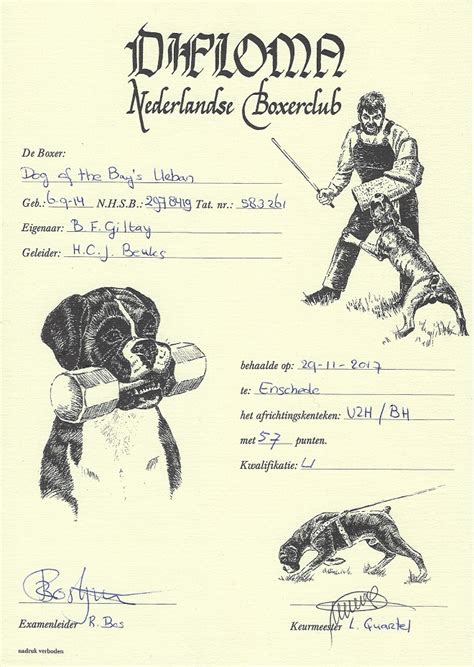 DIPLOMA
Nederlandse Boxerclub
De Boxer:
Dog of the Bay's Ueban
Geb.: 6-9-14 N.H.S.B.: 2978419 Tat. nr.: 583261
Eigenaar: B.F. Giltay
Geleider: H.C.J. Beukes
behaalde op: 29-11-2017
te: Enschede
het africhtingskenteken: VZH/BH
met 57 punten.
Kwalifikatie: U
Examenleider R. Bos
Keurmeester L. Quartel
nadruk verboden